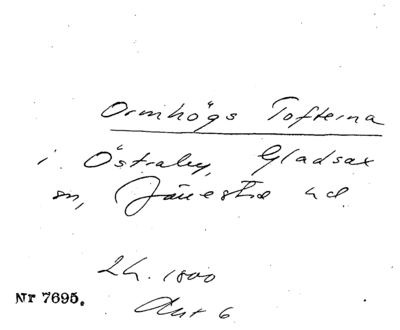 Ormhögs Tofterna
i Östraby, Gladsax
sn, Järrestad hd.
2 h. 1800
Nr 7695.
Akt 6